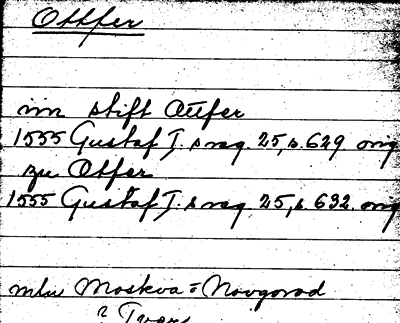 Ottfer
im stift Ottfer
1555 Gustaf I:s reg. 25, s. 629 orig
zu Otfer
1555 Gustaf I:s reg. 25, s 632. orig
mln Moskva - Novgorod
? Tver